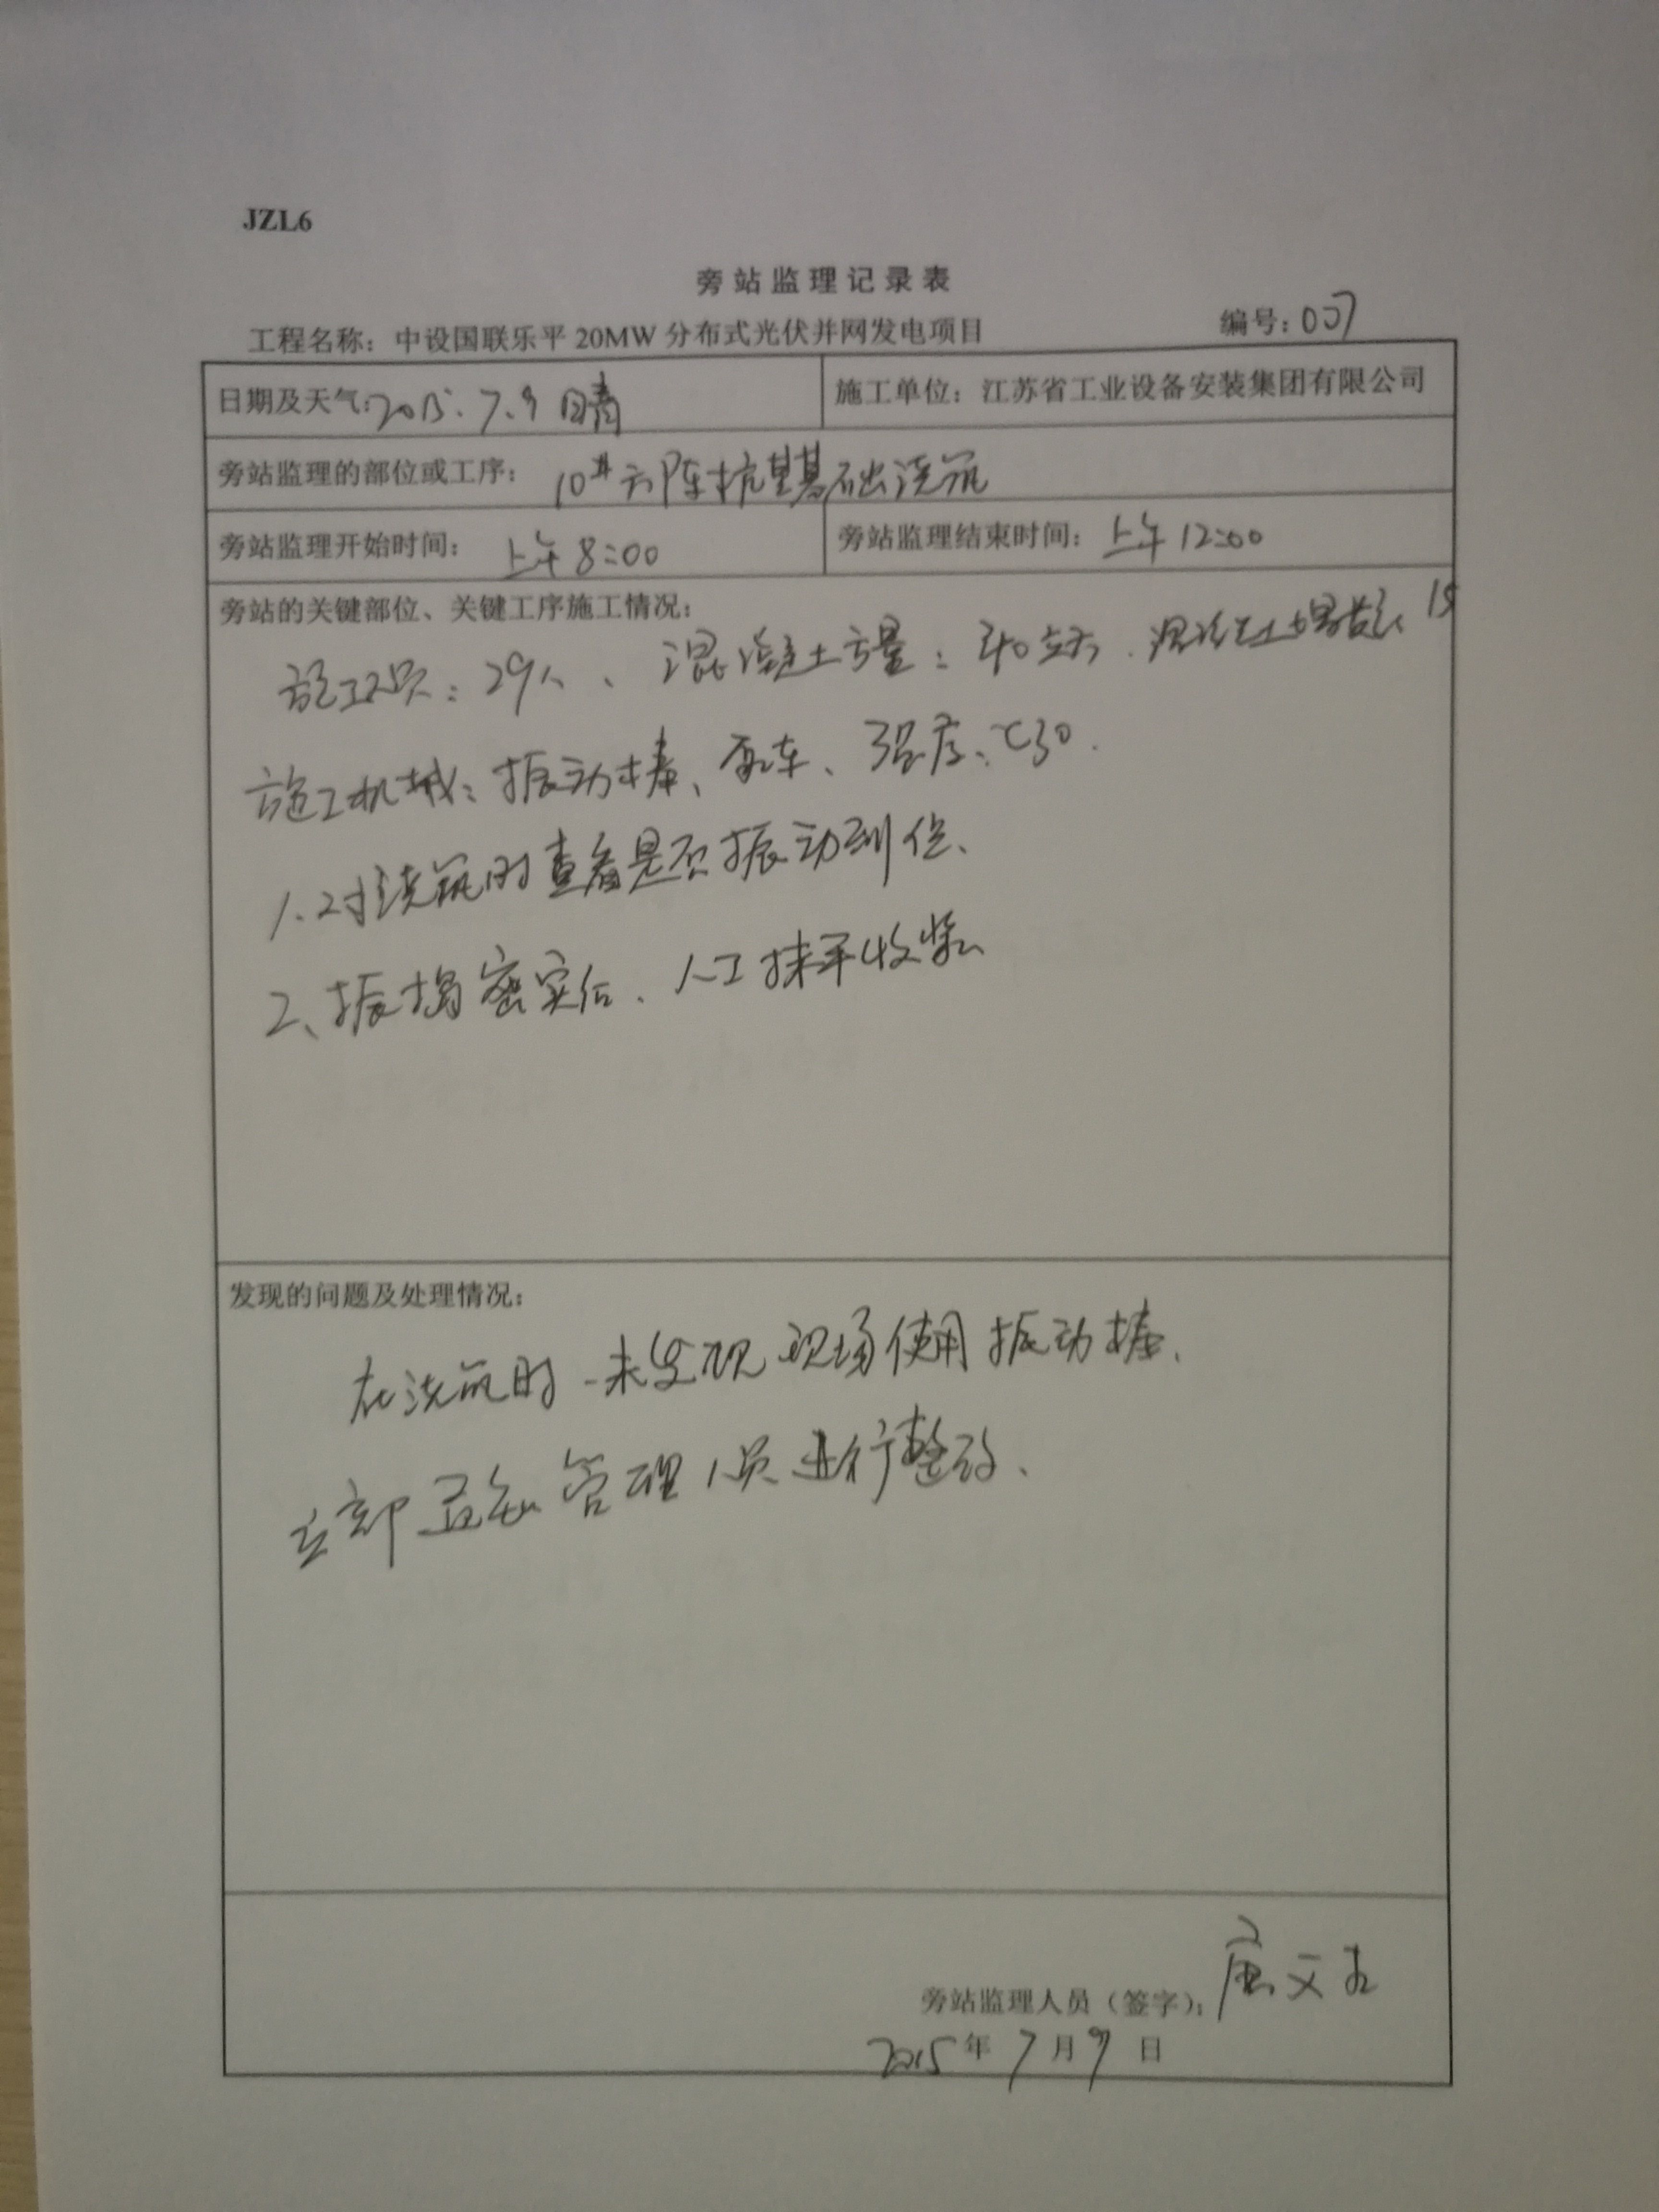 JZL6
旁站监理记录表
工程名称：中设国联乐平 20MW 分布式光伏并网发电项目 编号：007
日期及天气：2015.7.9 晴 施工单位：江苏省工业设备安装集团有限公司
旁站监理的部位或工序： 10#方阵桩基基础浇筑
旁站监理开始时间： 上午 8:00 旁站监理结束时间： 上午 12:00
旁站的关键部位、关键工序施工情况：
施工人员：29人、混凝土方量：340立方、混凝土
施工机械：振动棒、泵车、强度：C30.
1、对浇筑时查看是否振动到位、
2、振捣密实后、人工抹平收浆
发现的问题及处理情况：
在浇筑时、未发现现场使用振动棒、
立即通知管理人员进行整改、
旁站监理人员（签字）：唐文
2015 年 7 月 9 日